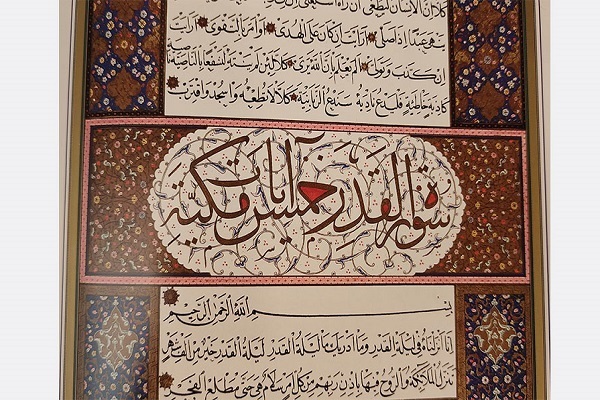 كَلَّا إِنَّ الْإِنْسَانَ لَيَطْغَى أَنْ رَآهُ اسْتَغْنَى
يَنْهَى عَبْدًا إِذَا صَلَّى أَرَأَيْتَ إِنْ كَانَ عَلَى الْهُدَى أَوْ أَمَرَ بِالتَّقْوَى أَرَأَيْتَ
إِنْ كَذَّبَ وَتَوَلَّى أَلَمْ يَعْلَمْ بِأَنَّ اللّٰهَ يَرَى كَلَّا لَئِنْ لَمْ يَنْتَهِ لَنَسْفَعًا بِالنَّاصِيَةِ نَاصِيَةٍ
كَاذِبَةٍ خَاطِئَةٍ فَلْيَدْعُ نَادِيَهُ سَنَدْعُ الزَّبَانِيَةَ كَلَّا لَا تُطِعْهُ وَاسْجُدْ وَاقْتَرِبْ
سورة القدر خمس آیات مكيّة
بِسْمِ اللّٰهِ الرَّحْمٰنِ الرَّحِيمِ
إِنَّا أَنْزَلْنَاهُ فِي لَيْلَةِ الْقَدْرِ وَمَا أَدْرٰيكَ مَا لَيْلَةُ الْقَدْرِ لَيْلَةُ الْقَدْرِ خَيْرٌ مِنْ أَلْفِ شَهْرٍ
تَنَزَّلُ الْمَلٰئِكَةُ وَالرُّوحُ فِيهَا بِإِذْنِ رَبِّهِمْ مِنْ كُلِّ أَمْرٍ سَلَامٌ هِيَ حَتَّى مَطْلَعِ الْفَجْرِ